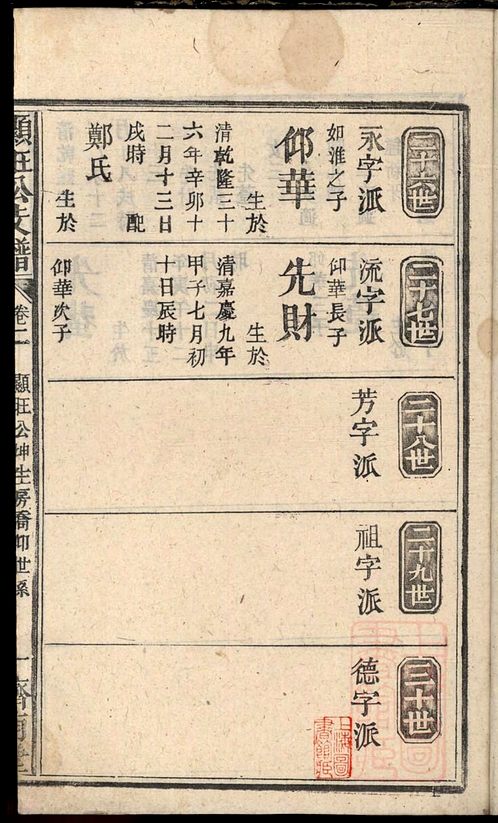 二十六世
永字派
如淮之子
仰華
生於
清乾隆三十
六年辛卯十
二月十三日
戌時 配
鄭氏
生於
二十七世
流字派
仰華長子
先財
生於
清嘉慶九年
甲子七月初
十日辰時
仰華次子
二十八世
芳字派
二十九世
祖字派
三十世
德字派
顯旺公支譜
卷二
顯旺公坤生房喬仰世系
一
濟南堂
上海圖
書館藏